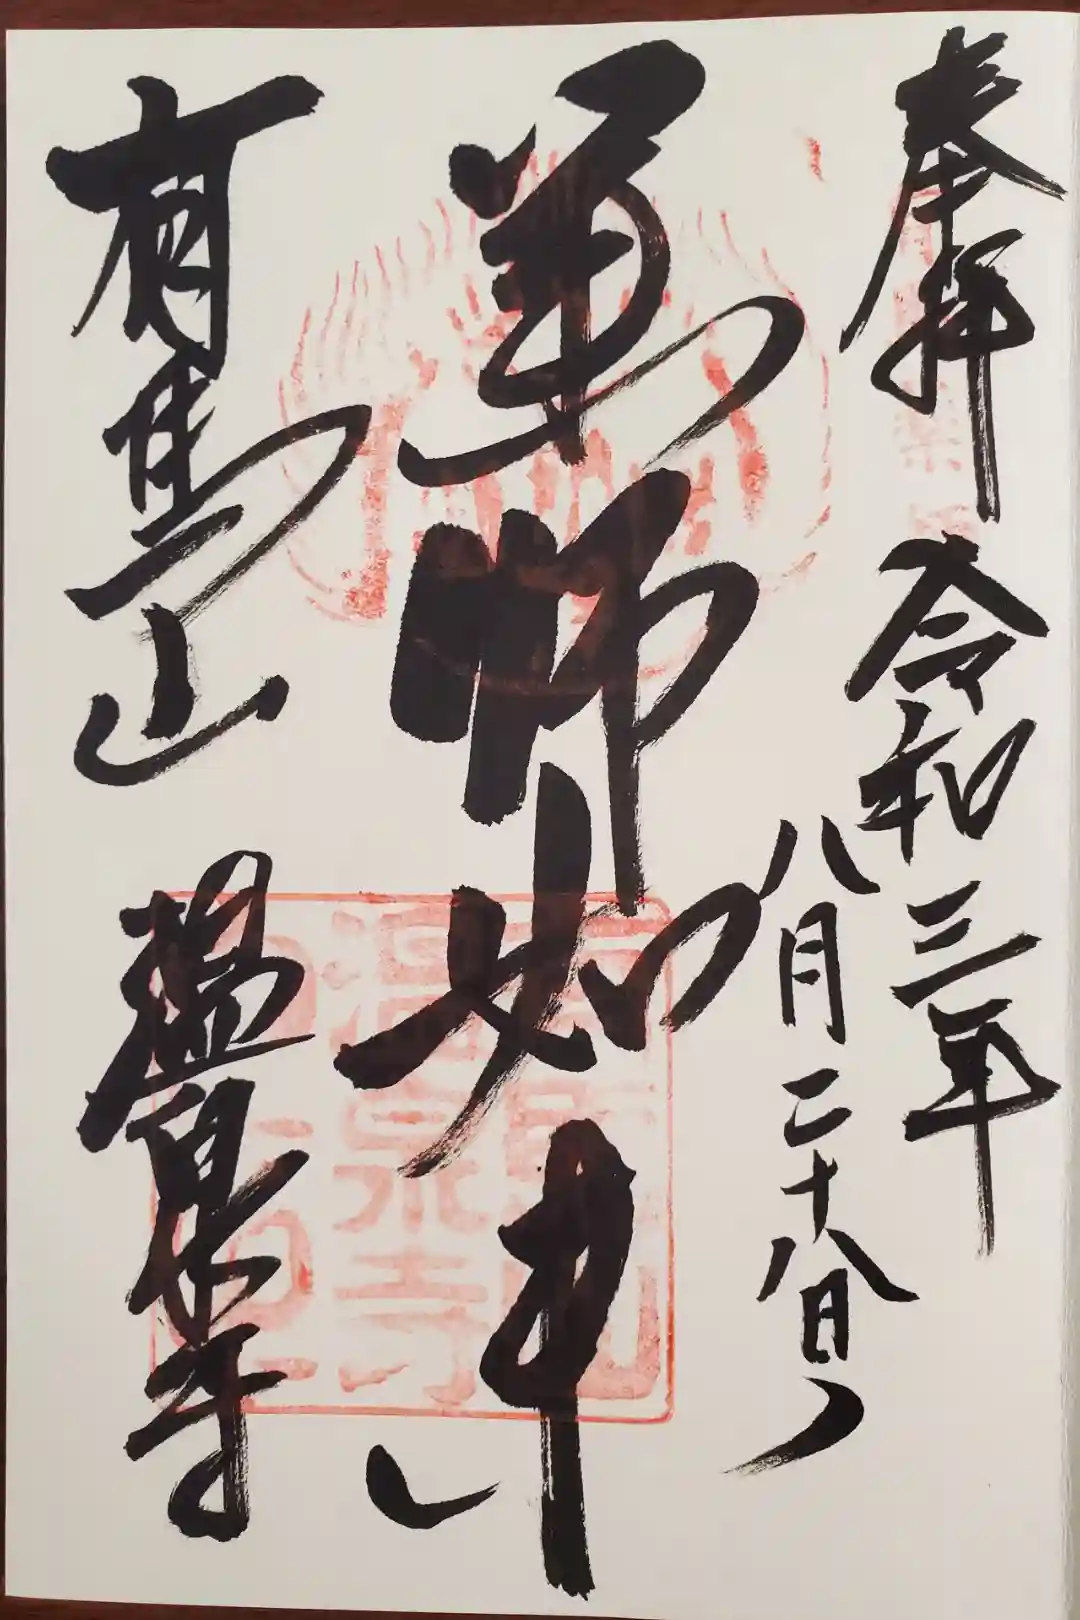 奉拝 令和三年
八月二十八日
薬師如来
有馬山 温泉寺
温泉寺